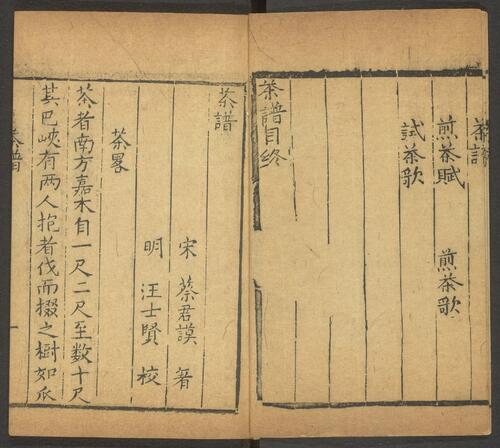 茶譜
煎茶賦 煎茶歌
試茶歌
茶譜目終
茶譜
宋 蔡君謨 著
明 汪士賢 校
茶畧
茶者南方嘉木自一尺二尺至数十尺
其巴峽有两人抱者伐而掇之樹如瓜
茶譜
一